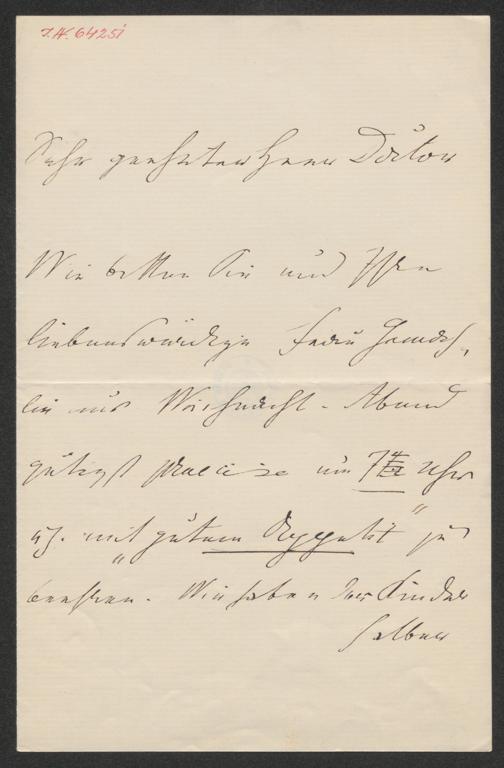 I.N. 64251
Sehr geehrter Herr Doctor
Wir bitten Sie und Ihre
liebenswürdige Frau Gemah-
lin uns Weihnacht-Abend
gütigst praecise um 7 Uhr
u. mit „gutem Appetit“ zu
beehren. Wir haben der Kinder
halber